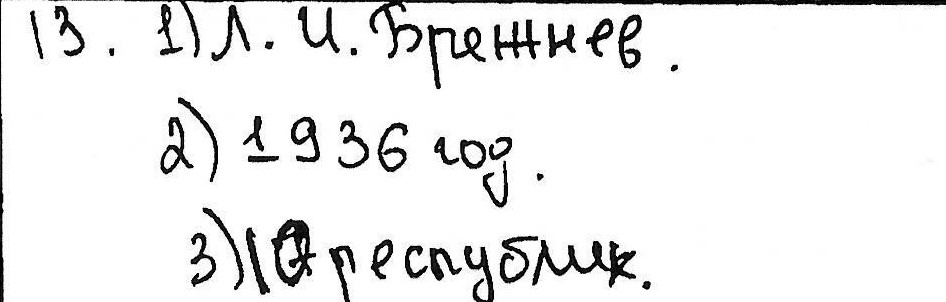 13. 1) Л. И. Брежнев.
2) 1936 год.
3) республик.